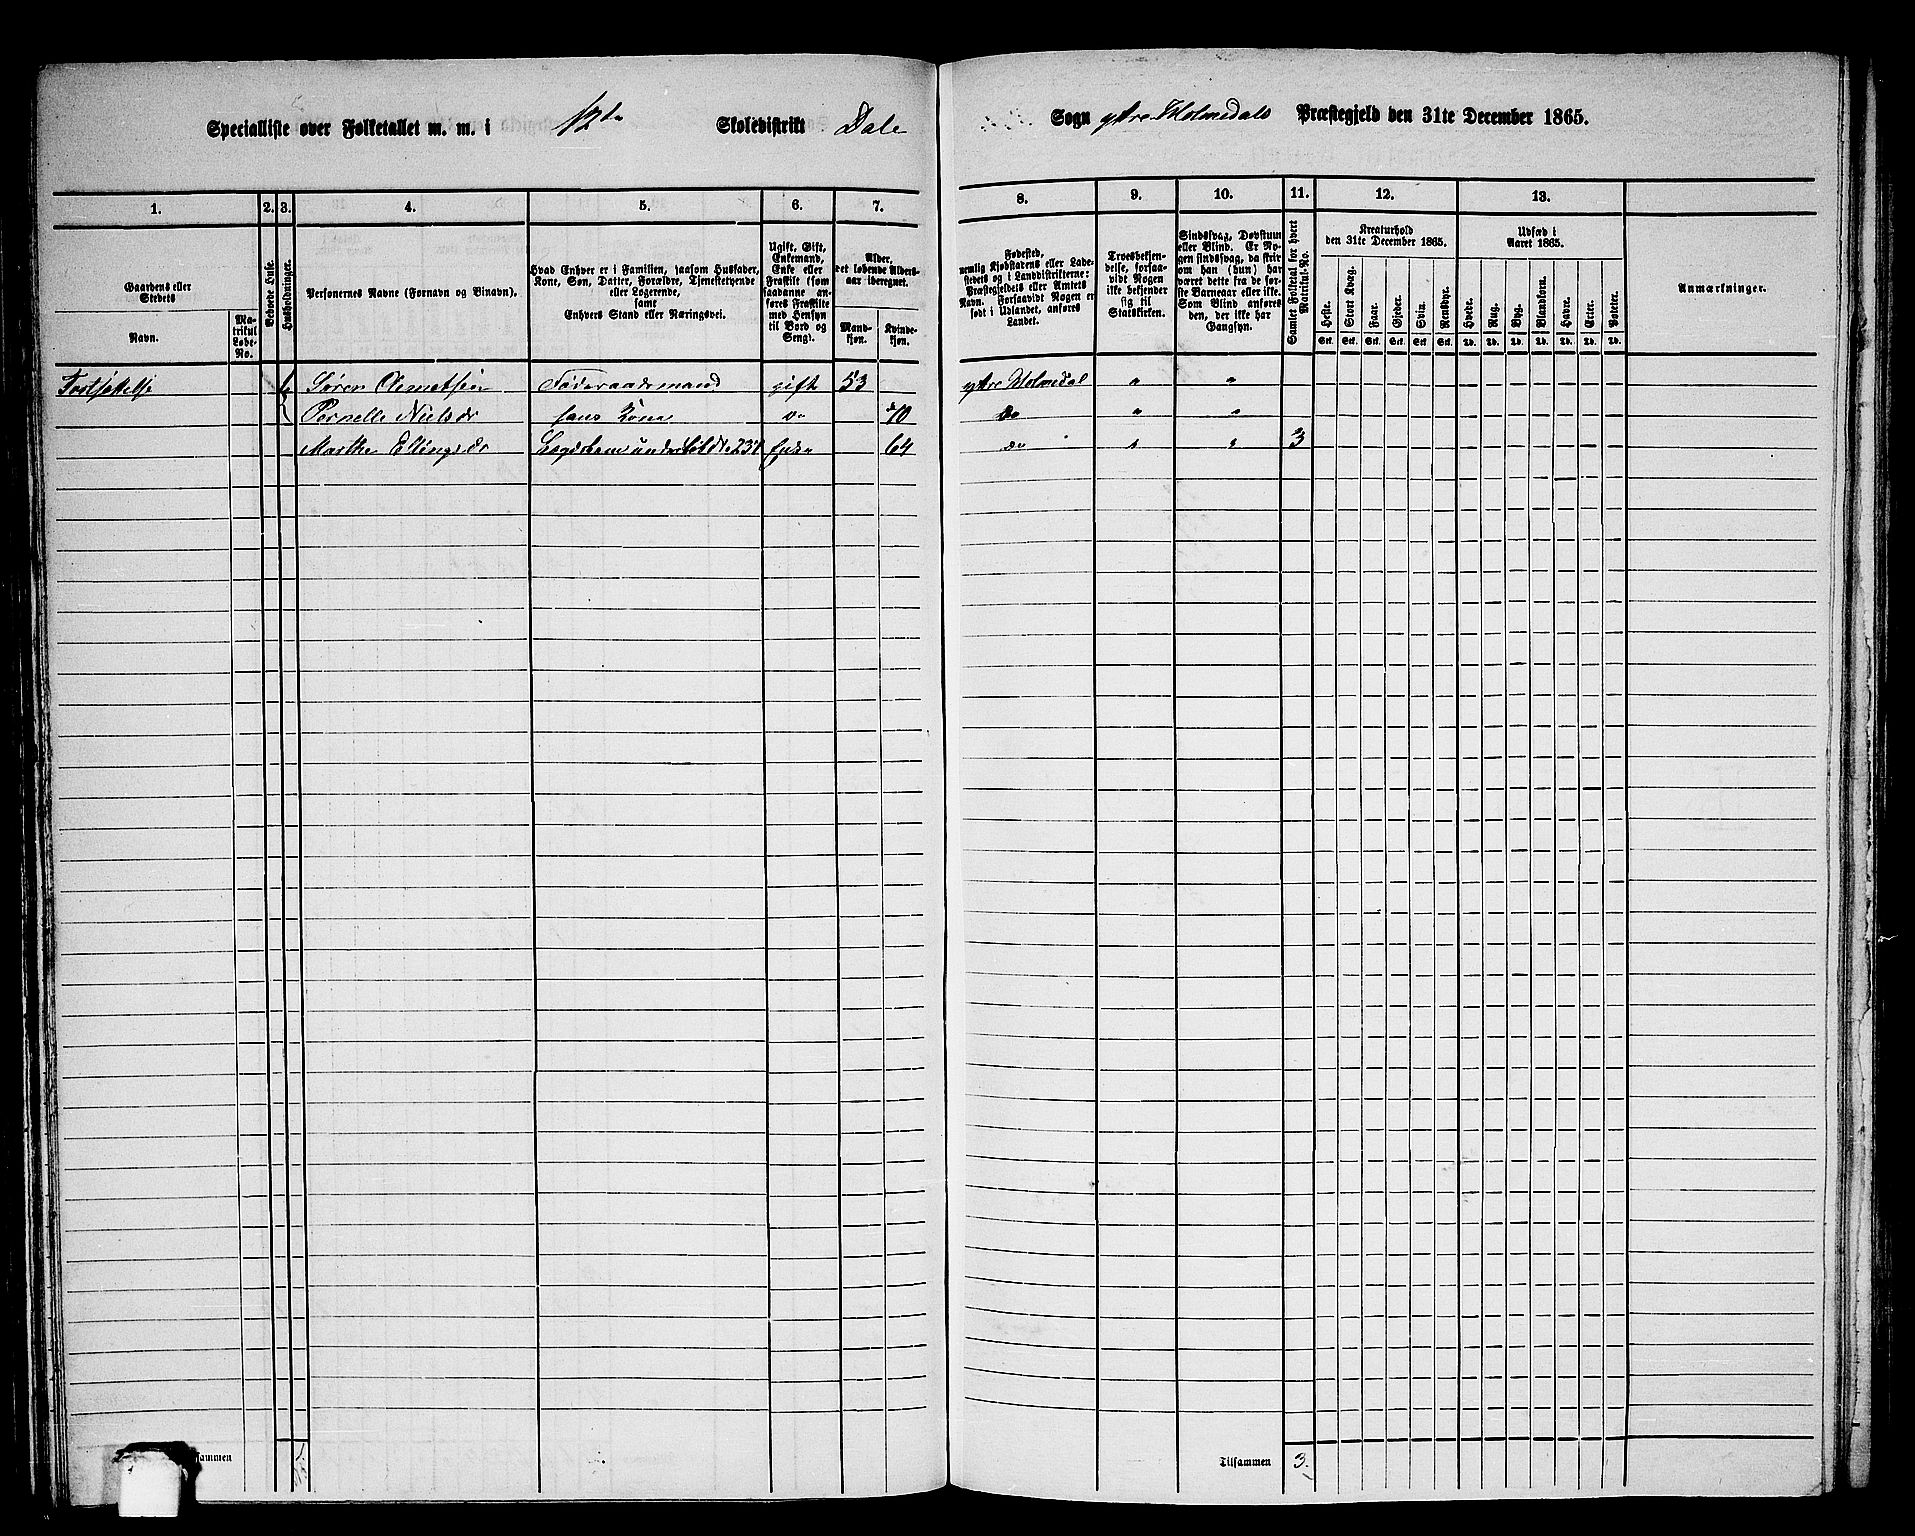 Specialliste over Folketallet m. m. i 12te Skoledistrikt Dale Sogn ytre Holmedals Præstegjeld den 31te December 1865.
1. 2. 3. 4. 5. 6. 7. 8. 9. 10. 11. 12. 13.
Gaardens eller Stedets
Navn.
Matrikul Løbe-No.
Beboede Huse.
Husholdninger.
Personernes Navne (Fornavn og Binavn).
Hvad Enhver er i Familien, saasom Husfader, Kone, Søn, Datter, Forældre, Tjenestetyende eller Logerende,
samt
Enhvers Stand eller Næringsvei.
Ugift, Gift, Enkemand, Enke eller Fraskilt (som saadanne anføres Fraskilte med Hensyn til Bord og Seng).
Alder, det løbende Alders-aar iberegnet.
Mand-kjøn.
Kvinde-kjøn.
Fødested, nemlig Kjøbstadens eller Ladestedets og i Landdistrikterne: Præstegjeldets eller Amtets Navn. Forsaavidt Nogen er født i Udlandet, anføres Landet.
Troesbekjendelse, forsaavidt Nogen ikke bekjender sig til Statskirken.
Sindssvag, Døvstum eller Blind. Er Nogen sindssvag, da skriv om han (hun) har været dette fra de første Barneaar eller ikke. Som Blind anføres den, der ikke har Gangsyn.
Samlet Folketal for hvert Matrikul-No.
Kreaturhold den 31te December 1865.
Heste. Stort Kvæg. Faar. Gjeder. Svin. Rensdyr.
Stk. Stk. Stk. Stk. Stk. Stk.
Udsæd i Aaret 1865.
Hvede. Rug. Byg. Blandkorn. Havre. Erter. Poteter.
Td. Td. Td. Td. Td. Td. Td.
Anmærkninger.
Fortsættelse Søren Clemetsen Føderaadsmand gift 53 ytre Holmedal " "
Pernelle Nielsdr hans Kone do do " "
Marthe Ellingsdr Enke 64 do " " 3
Tilsammen 3.